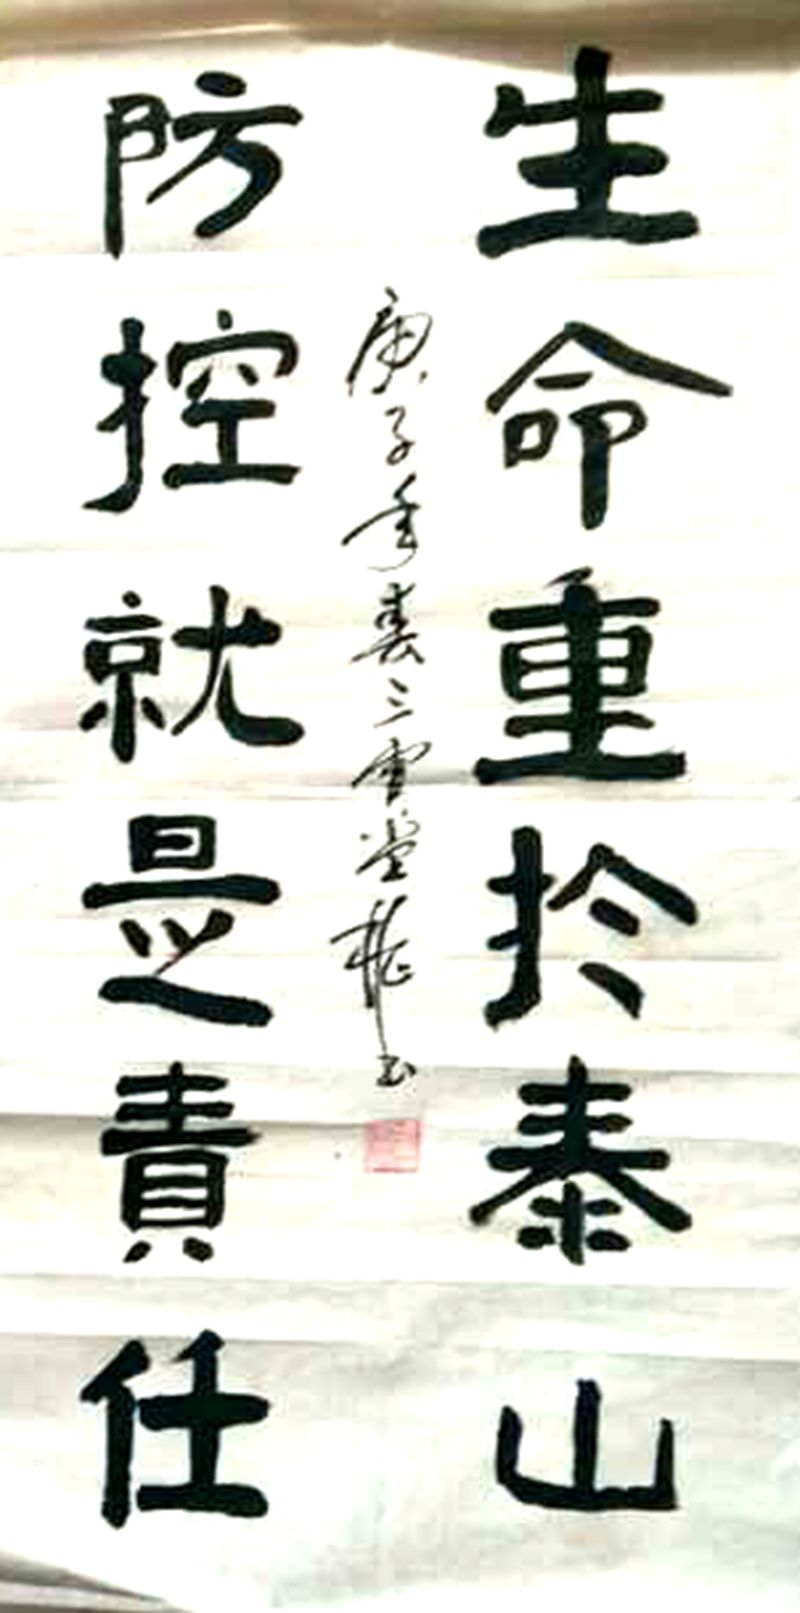 生命重於泰山
防控就是責任
庚子年春三雪堂